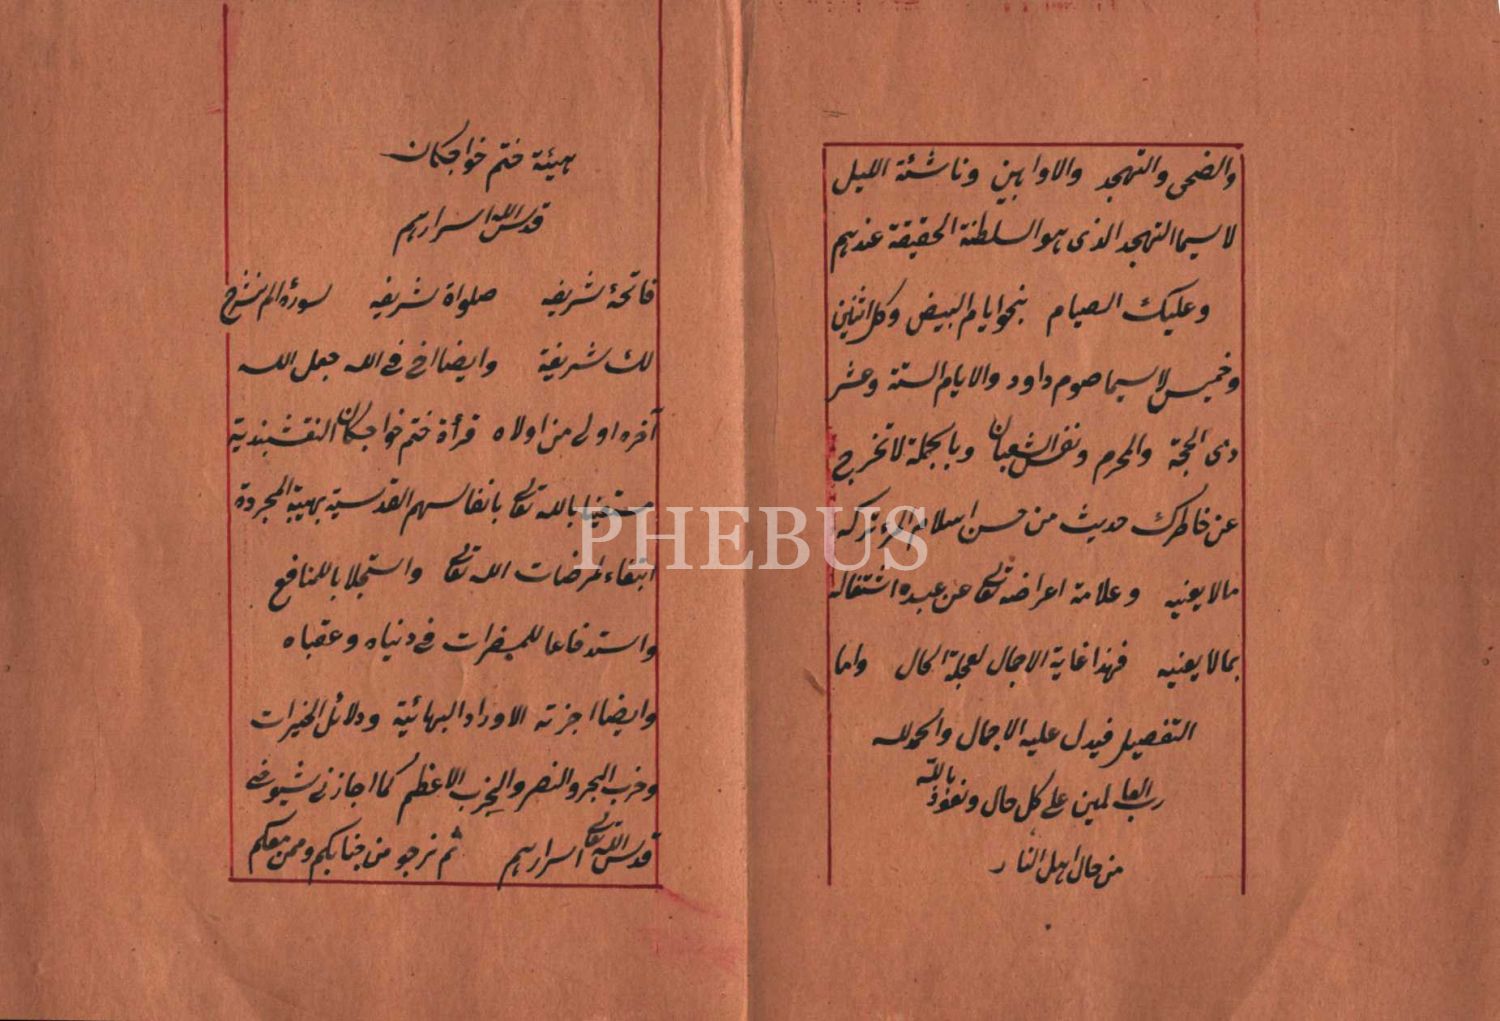 والضحى والتهجد والاوابين وناشئة الليل
لاسيما التهجد الذى هو السلطنة الحقيقة عندهم
وعليك الصيام بنحو ايام البيض وكل اثنين
وخميس لاسيما صوم داود والايام الستة وعشر
ذى الحجة والمحرم ونصف الشعبان وبالجملة لا تخرج
عن خاطرك حديث من حسن اسلام المرء تركه
مالا يعنيه وعلامة اعراضه تعالى عن عبده اشتغاله
بمالا يعنيه فهذا غاية الاجمال لعجلة الحال واما
التفصيل فيدل عليه الاجمال والحمد لله
رب العالمين على كل حال ونعوذ بالله
من حال اهل النار
هيئة ختم خواجكان
قدس الله اسرارهم
فاتحۀ شريفه صلواة شريفه سورۀ الم نشرح
لك شريفة وايضا اخ فى الله جعل الله
آخره اولى من اولاه قرأة ختم خواجكان النقشبندية
مستعينا بالله تعالى بانفاسهم القدسية المجردة
ابتغاء لمرضات الله تعالى واستجلابا للمنافع
واستدفاعا للمضرات فى دنياه وعقباه
وايضا اجزته الاوراد البهائية ودلائل الخيرات
وحزب البحر والنصر والحزب الاعظم كما اجازنى شيوخى
قدس الله تعالى اسرارهم ثم نرجو من جنابكم وممن معكم
PHEBUS